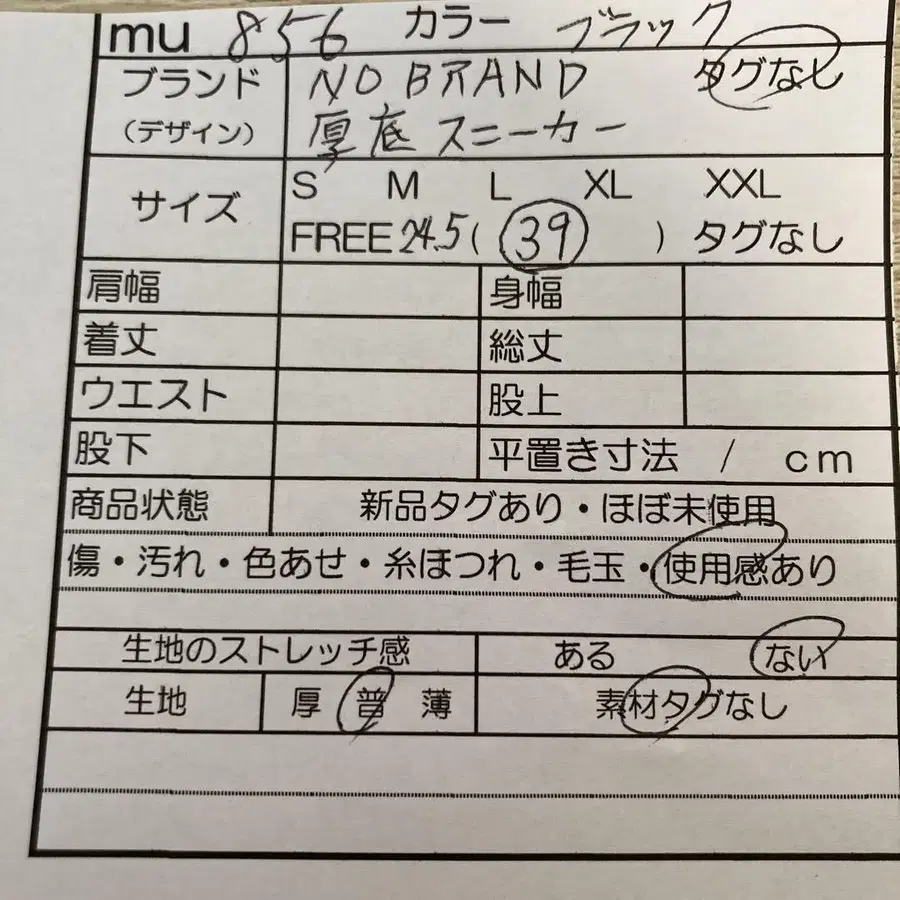 mu 856 カラー ブラック
ブランド NO BRAND タグなし
(デザイン) 厚底スニーカー
サイズ S M L XL XXL
FREE 24.5 ( 39 ) タグなし
肩幅 身幅
着丈 総丈
ウエスト 股上
股下 平置き寸法 / cm
商品状態 新品タグあり・ほぼ未使用
傷・汚れ・色あせ・糸ほつれ・毛玉・使用感あり
生地のストレッチ感 ある ない
生地 厚 普 薄 素材タグなし